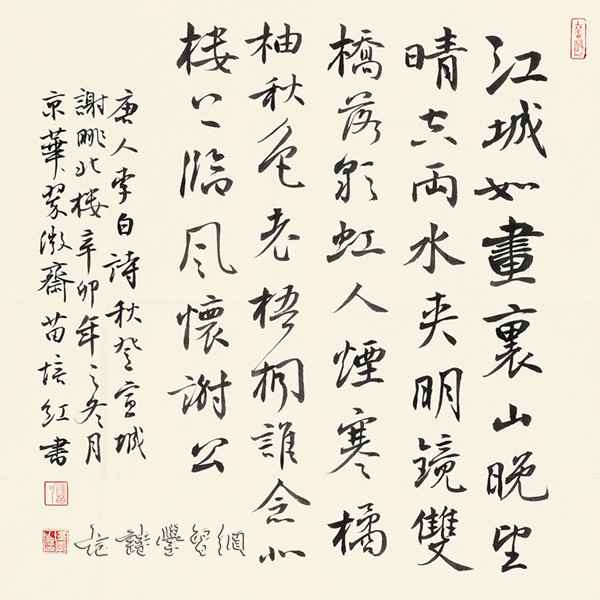 江城如畫裏山晚望
晴空兩水夾明鏡雙
橋落彩虹人煙寒橘
柚秋色老梧桐誰念北
樓上臨風懷謝公
唐人李白詩秋登宣城
謝朓北樓辛卯年之冬月
京華翠微齋苗培红書
詩學習網